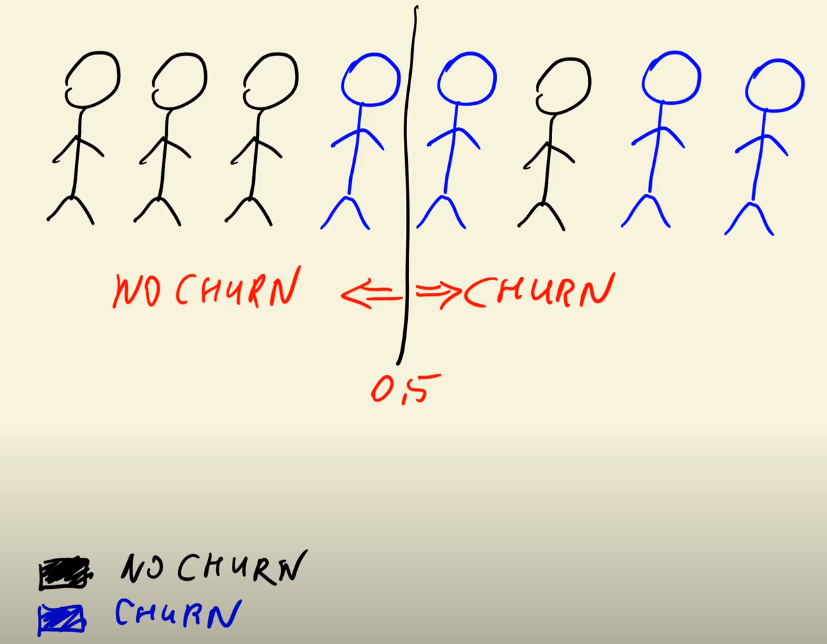 NO CHURN ⇐ ⇒ CHURN
0,5
NO CHURN
CHURN